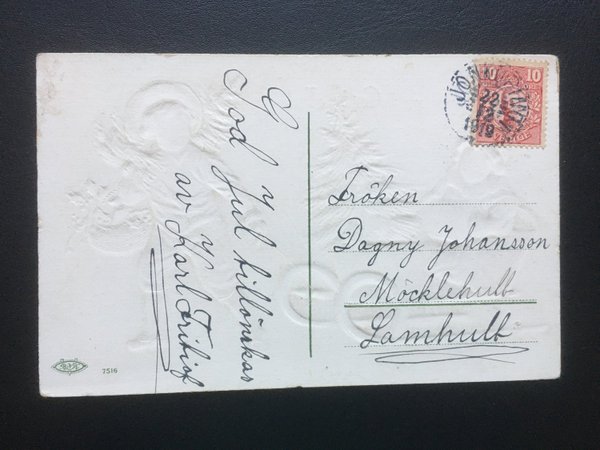 God Jul tillönskas
av Karl Fritiof
Fröken
Dagny Johansson
Möcklehult
Lamhult
10 10
22
12
1919
7516